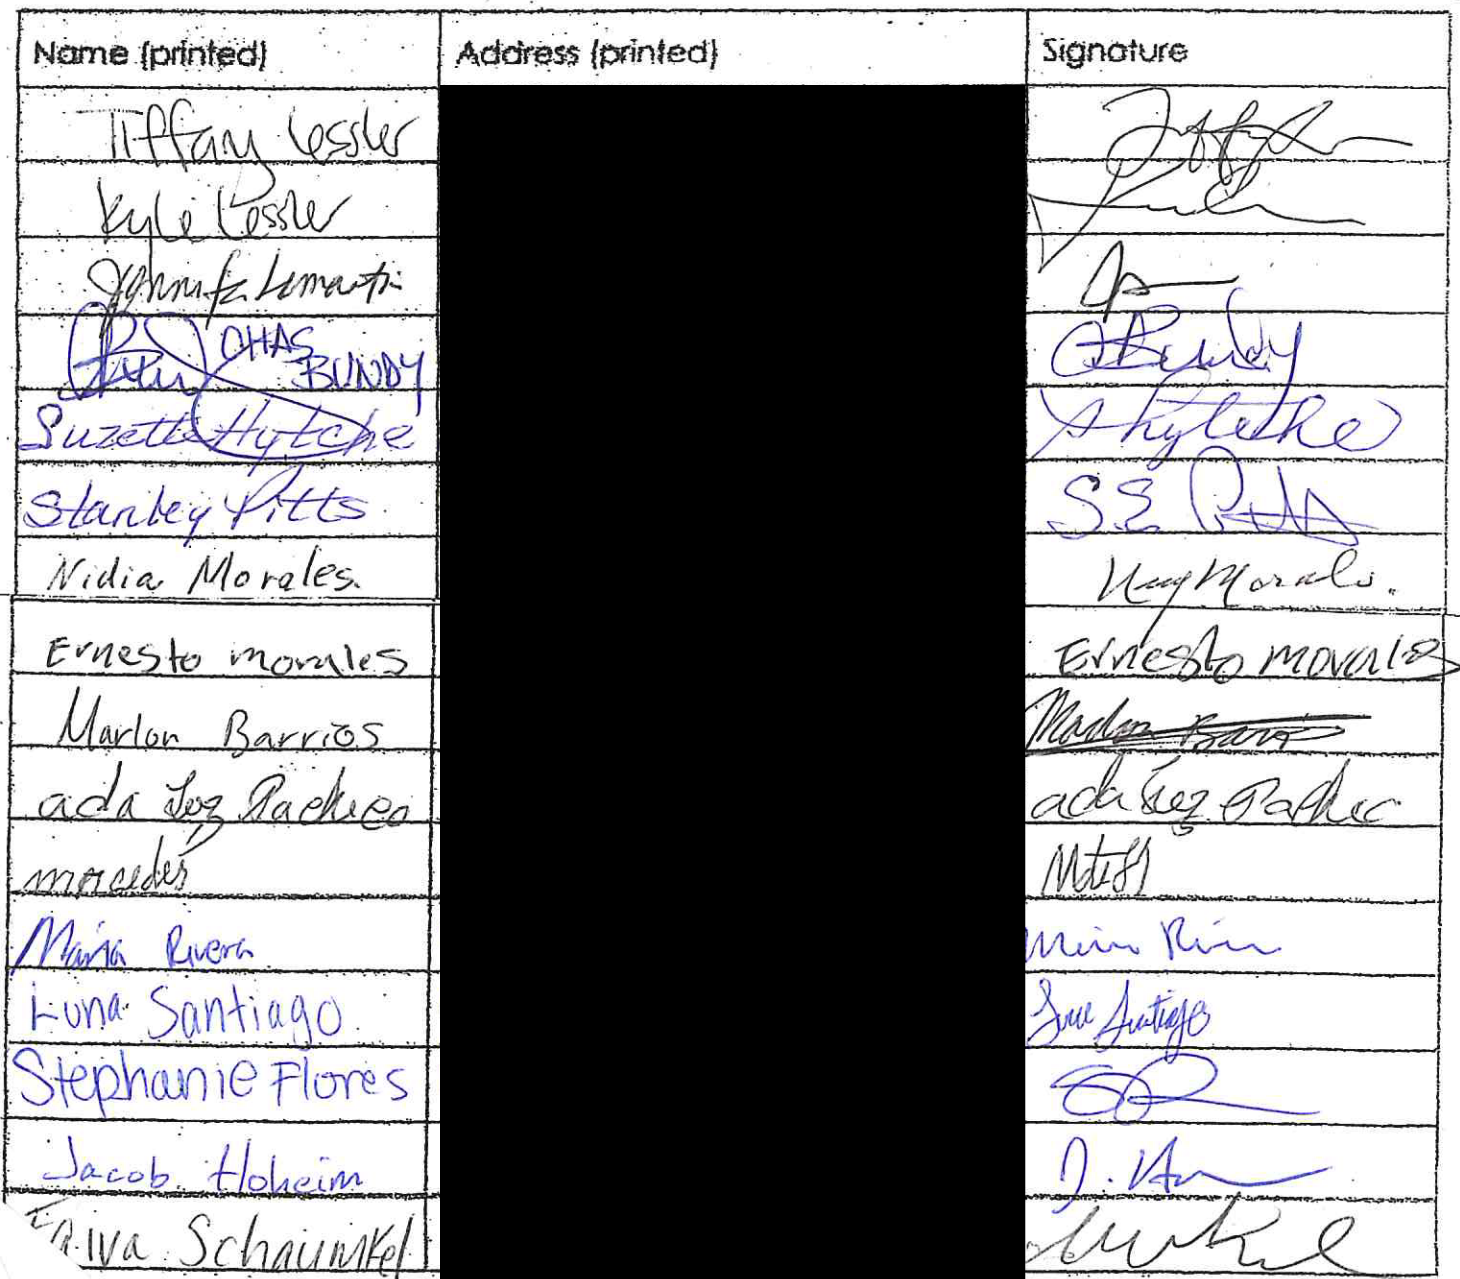 Name (printed) Address (printed) Signature
Tiffany Lessler
Kyle Lessler
Jennifer
CHAS BUNDY CBundy
Suzette Hytche SHytche
Stanley Pitts S.E. Pitts
Nidia Morales. Morales.
Ernesto morales Ernesto morales
Marlon Barrios Marlon Barrios
ada Luz Pacheco ada Luz Pachec
mercedes
Maria Rivera
Luna Santiago Luna Santiago
Stephanie Flores
Jacob Hoheim J. H
Schaumkel